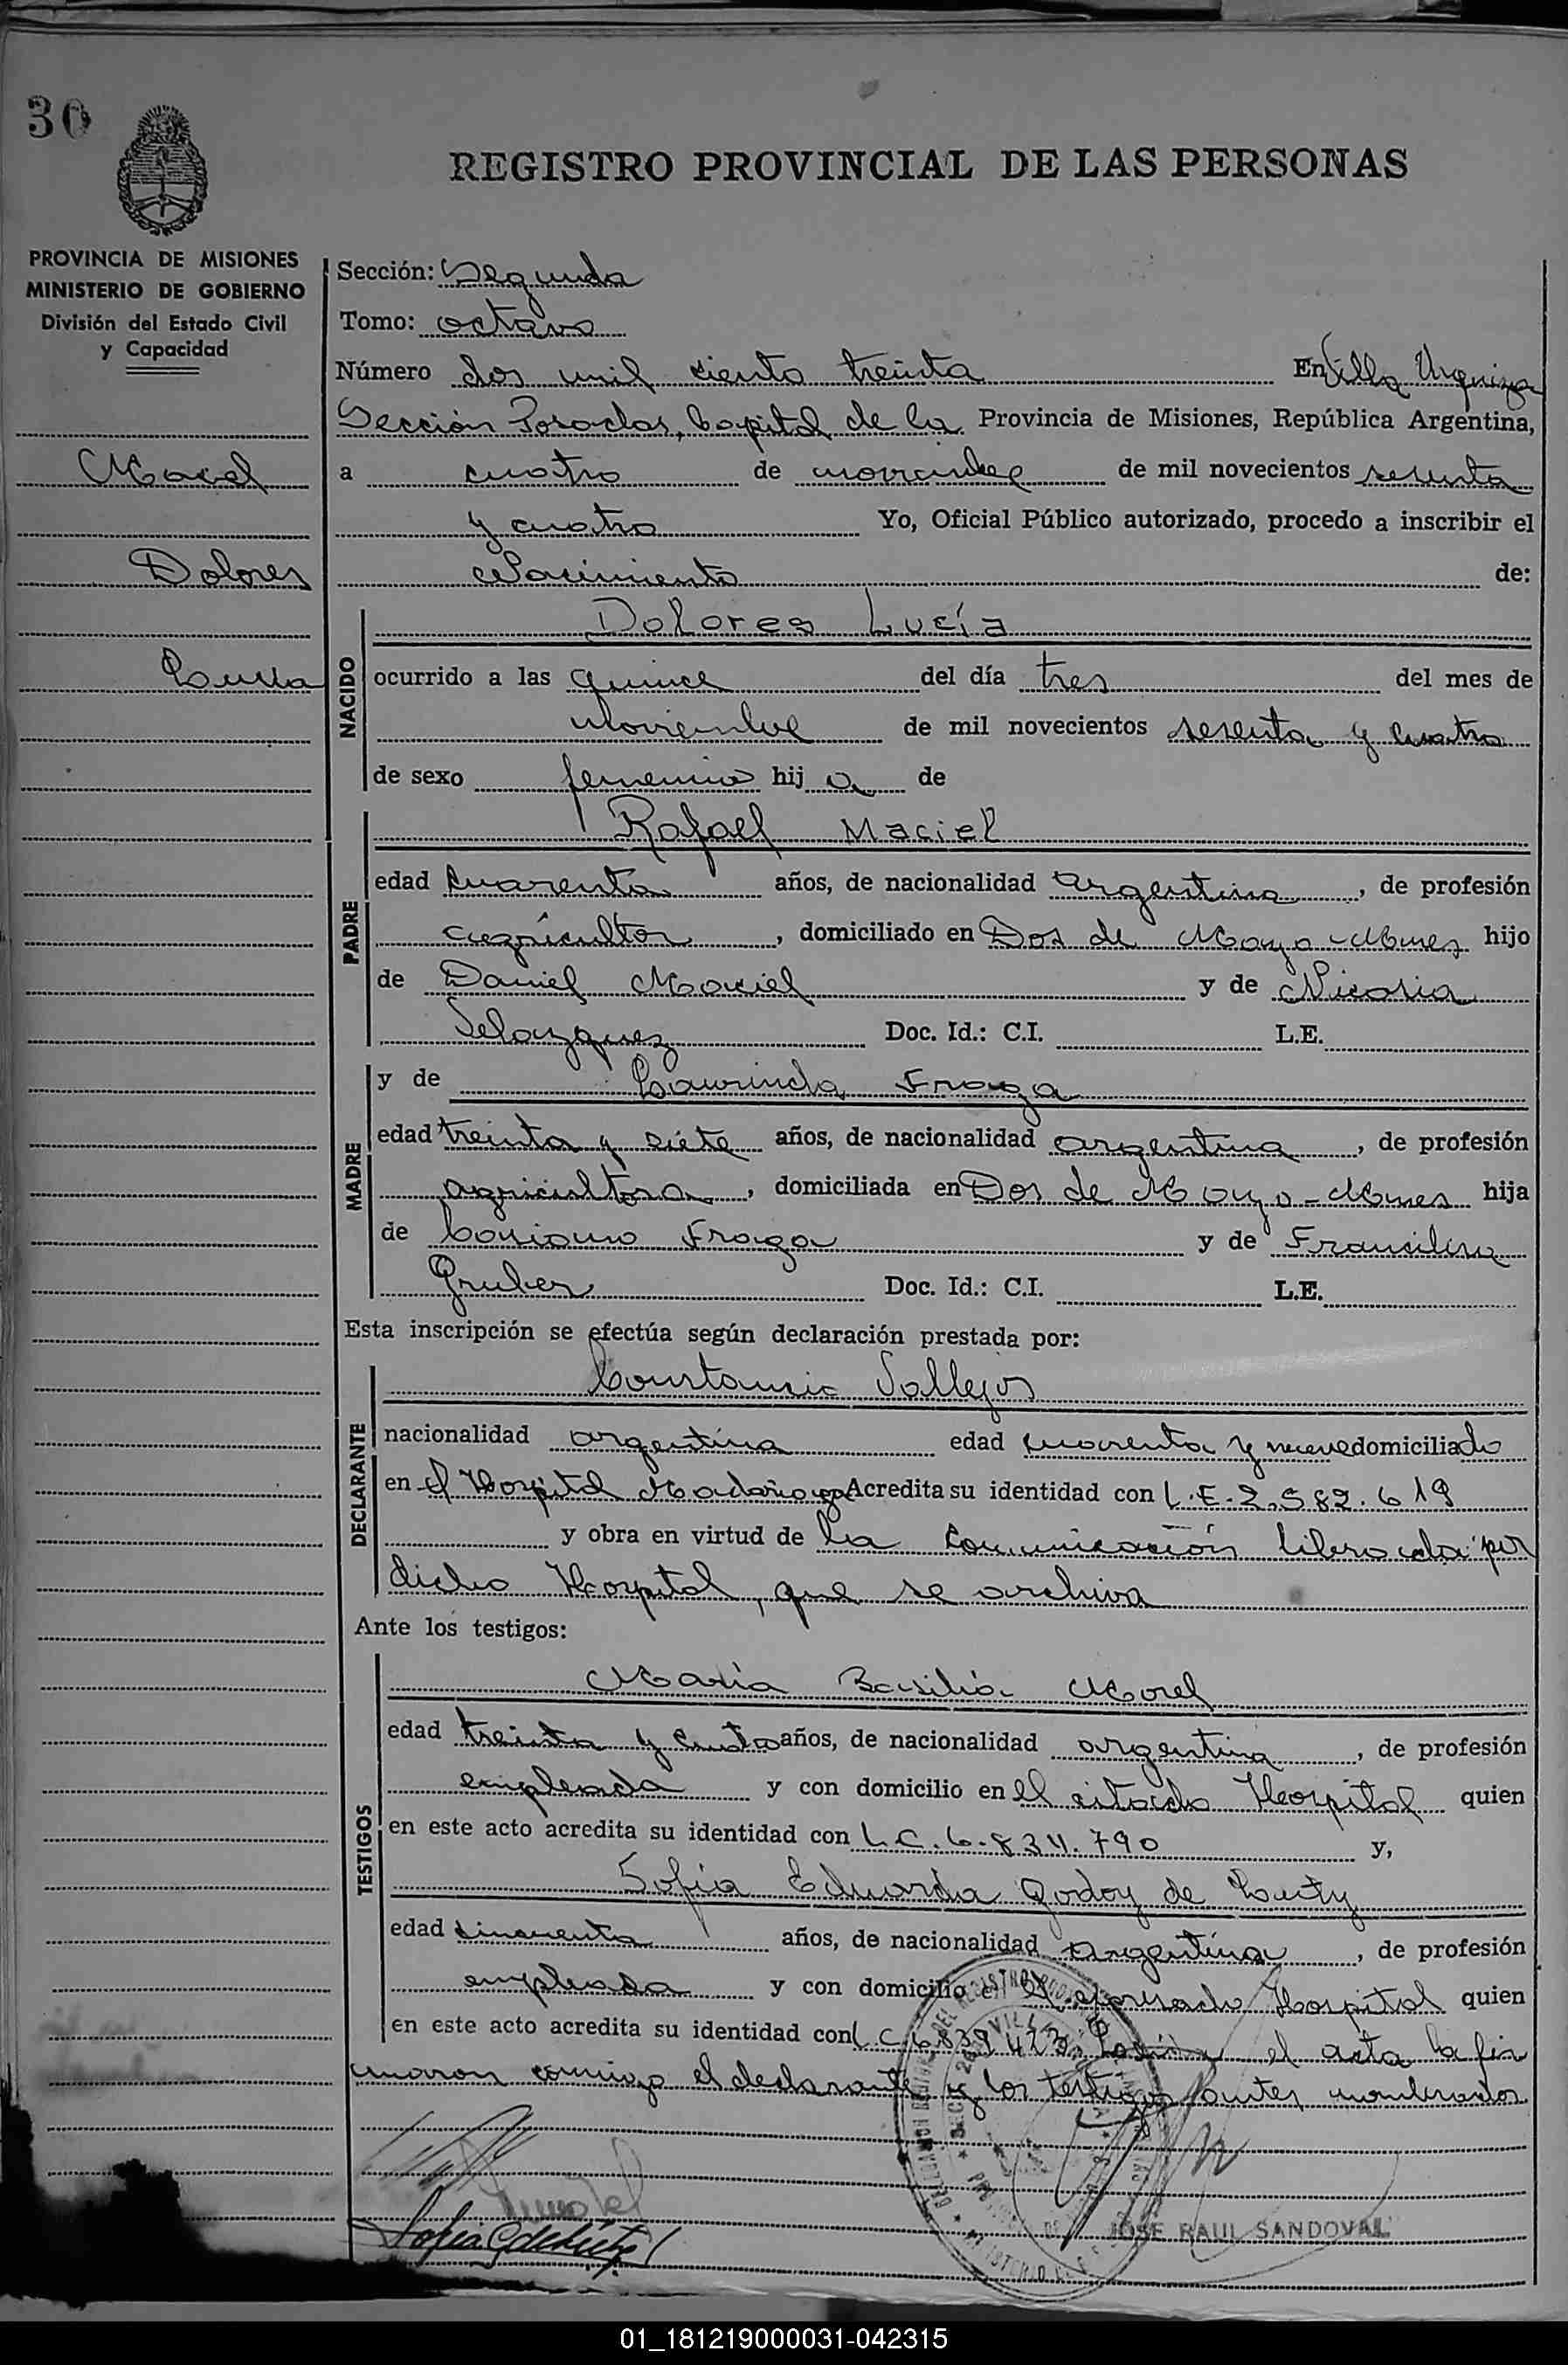 30
REGISTRO PROVINCIAL DE LAS PERSONAS
PROVINCIA DE MISIONES
MINISTERIO DE GOBIERNO
División del Estado Civil
y Capacidad
Dolores
Sección: Segunda
Tomo: octavo
Número dos mil ciento treinta En Villa Urquiza
Sección Posadas, Capital de la Provincia de Misiones, República Argentina,
a cuatro de noviembre de mil novecientos sesenta
y cuatro Yo, Oficial Público autorizado, procedo a inscribir el
Nacimiento de:
NACIDO
Dolores Lucía
ocurrido a las quince del día tres del mes de
noviembre de mil novecientos sesenta y cuatro
de sexo femenino hij a de
PADRE
Rafael Maciel
edad cuarenta años, de nacionalidad argentina, de profesión
agricultor, domiciliado en Dos de Mayo - Mnes hijo
de Daniel Maciel y de Nicasia
Velazquez Doc. Id.: C.I. L.E.
MADRE
y de Laurinda Fraga
edad treinta y siete años, de nacionalidad argentina, de profesión
agricultora, domiciliada en Dos de Mayo - Mnes hija
de Fraga y de
Gruber Doc. Id.: C.I. L.E.
Esta inscripción se efectúa según declaración prestada por:
DECLARANTE
Vallejos
nacionalidad argentina edad cuarenta y nueve domiciliado
en el Hospital Madariaga Acredita su identidad con L.E. 2.582.619
y obra en virtud de la comunicación librada por
dicho Hospital, que se archiva
Ante los testigos:
TESTIGOS
María Basilia Morel
edad treinta y años, de nacionalidad argentina, de profesión
empleada y con domicilio en el citado Hospital quien
en este acto acredita su identidad con L.C. 6.834.790 y,
Sofia Eduarda Godoy de
edad cincuenta años, de nacionalidad argentina, de profesión
empleada y con domicilio en el expresado Hospital quien
en este acto acredita su identidad con L C 6839423 el acta la fir
maron conmigo el declarante y los testigos antes nombrados
JOSE RAUL SANDOVAL
01_181219000031-042315